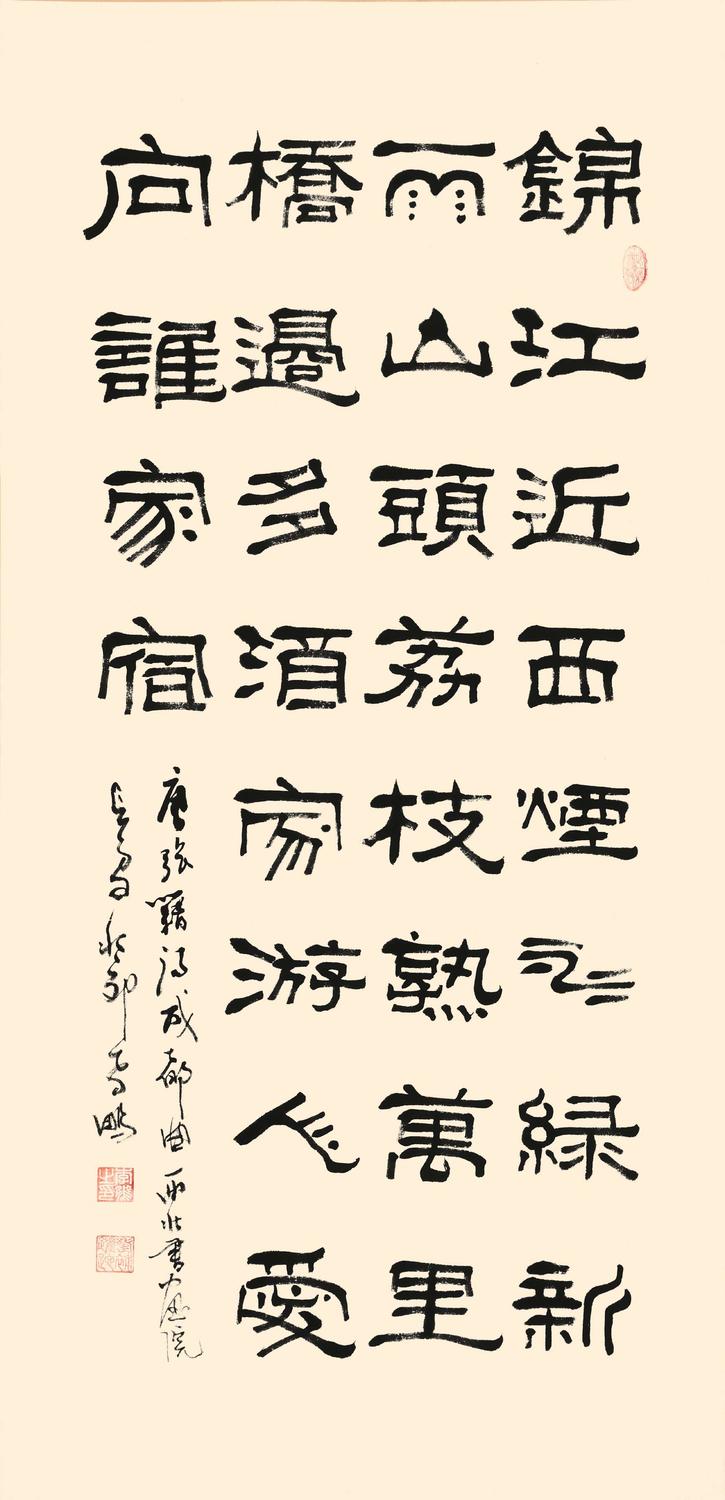 錦江近西煙水緑新
雨山頭荔枝熟萬里
橋邊多酒家游人愛
向誰家宿
唐張籍詩成都曲西北書画院